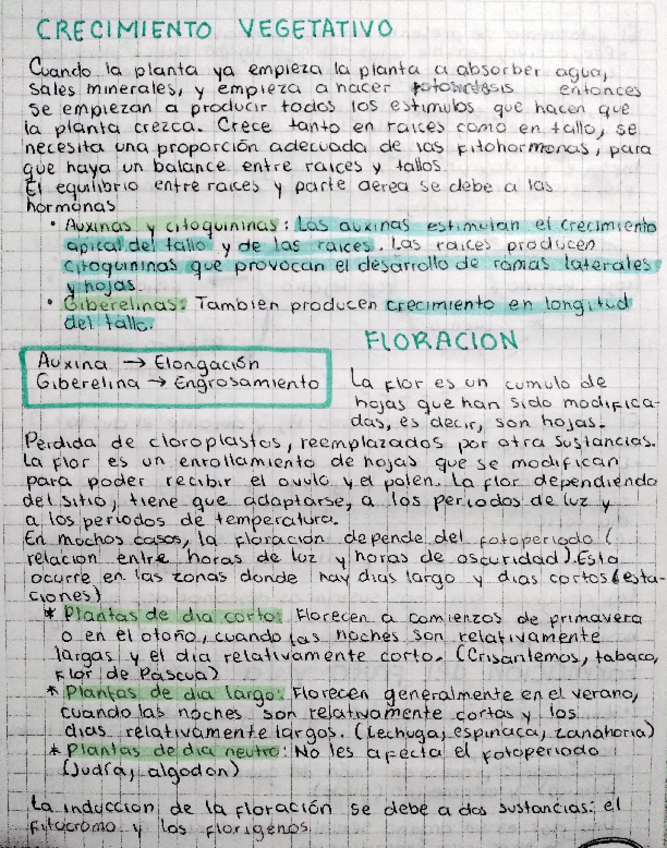 CRECIMIENTO VEGETATIVO
Cuando la planta ya empieza la planta a absorber agua,
sales minerales, y empieza a hacer fotosintesis entonces
se empiezan a producir todos los estimulos que hacen que
la planta crezca. Crece tanto en raices como en tallo, se
necesita una proporción adecuada de las fitohormonas, para
que haya un balance entre raices y tallos.
El equilibrio entre raices y parte aerea se debe a las
hormonas
• Auxinas y citoquininas: Las auxinas estimulan el crecimiento
apical del tallo y de las raices. Las raices producen
citoquininas que provocan el desarrollo de ramas laterales
y hojas.
• Giberelinas: Tambien producen crecimiento en longitud
del tallo.
Auxina → Elongación
Giberelina → Engrosamiento
FLORACION
La flor es un cumulo de
hojas que han sido modifica-
das, es decir, son hojas.
Pérdida de cloroplastos, reemplazados por otra sustancias.
La flor es un enrollamiento de hojas que se modifican
para poder recibir el ovulo y el polen. La flor dependiendo
del sitio, tiene que adaptarse, a los periodos de luz y
a los periodos de temperatura.
En muchos casos, la floración depende del fotoperiodo (
relacion entre horas de luz y horas de oscuridad). Esto
ocurre en las zonas donde hay dias largo y dias cortos (esta-
ciones)
* Plantas de dia corto: Florecen a comienzos de primavera
o en el otoño, cuando las noches son relativamente
largas y el dia relativamente corto. (Crisantemos, tabaco,
Flor de Pascua)
* Plantas de dia largo: Florecen generalmente en el verano,
cuando las noches son relativamente cortas y los
dias relativamente largos. (Lechuga, espinaca, zanahoria)
* Plantas de dia neutro: No les afecta el fotoperiodo
(Judía, algodon)
La induccion de la floración se debe a dos sustancias: el
fitocromo y los florigenos.